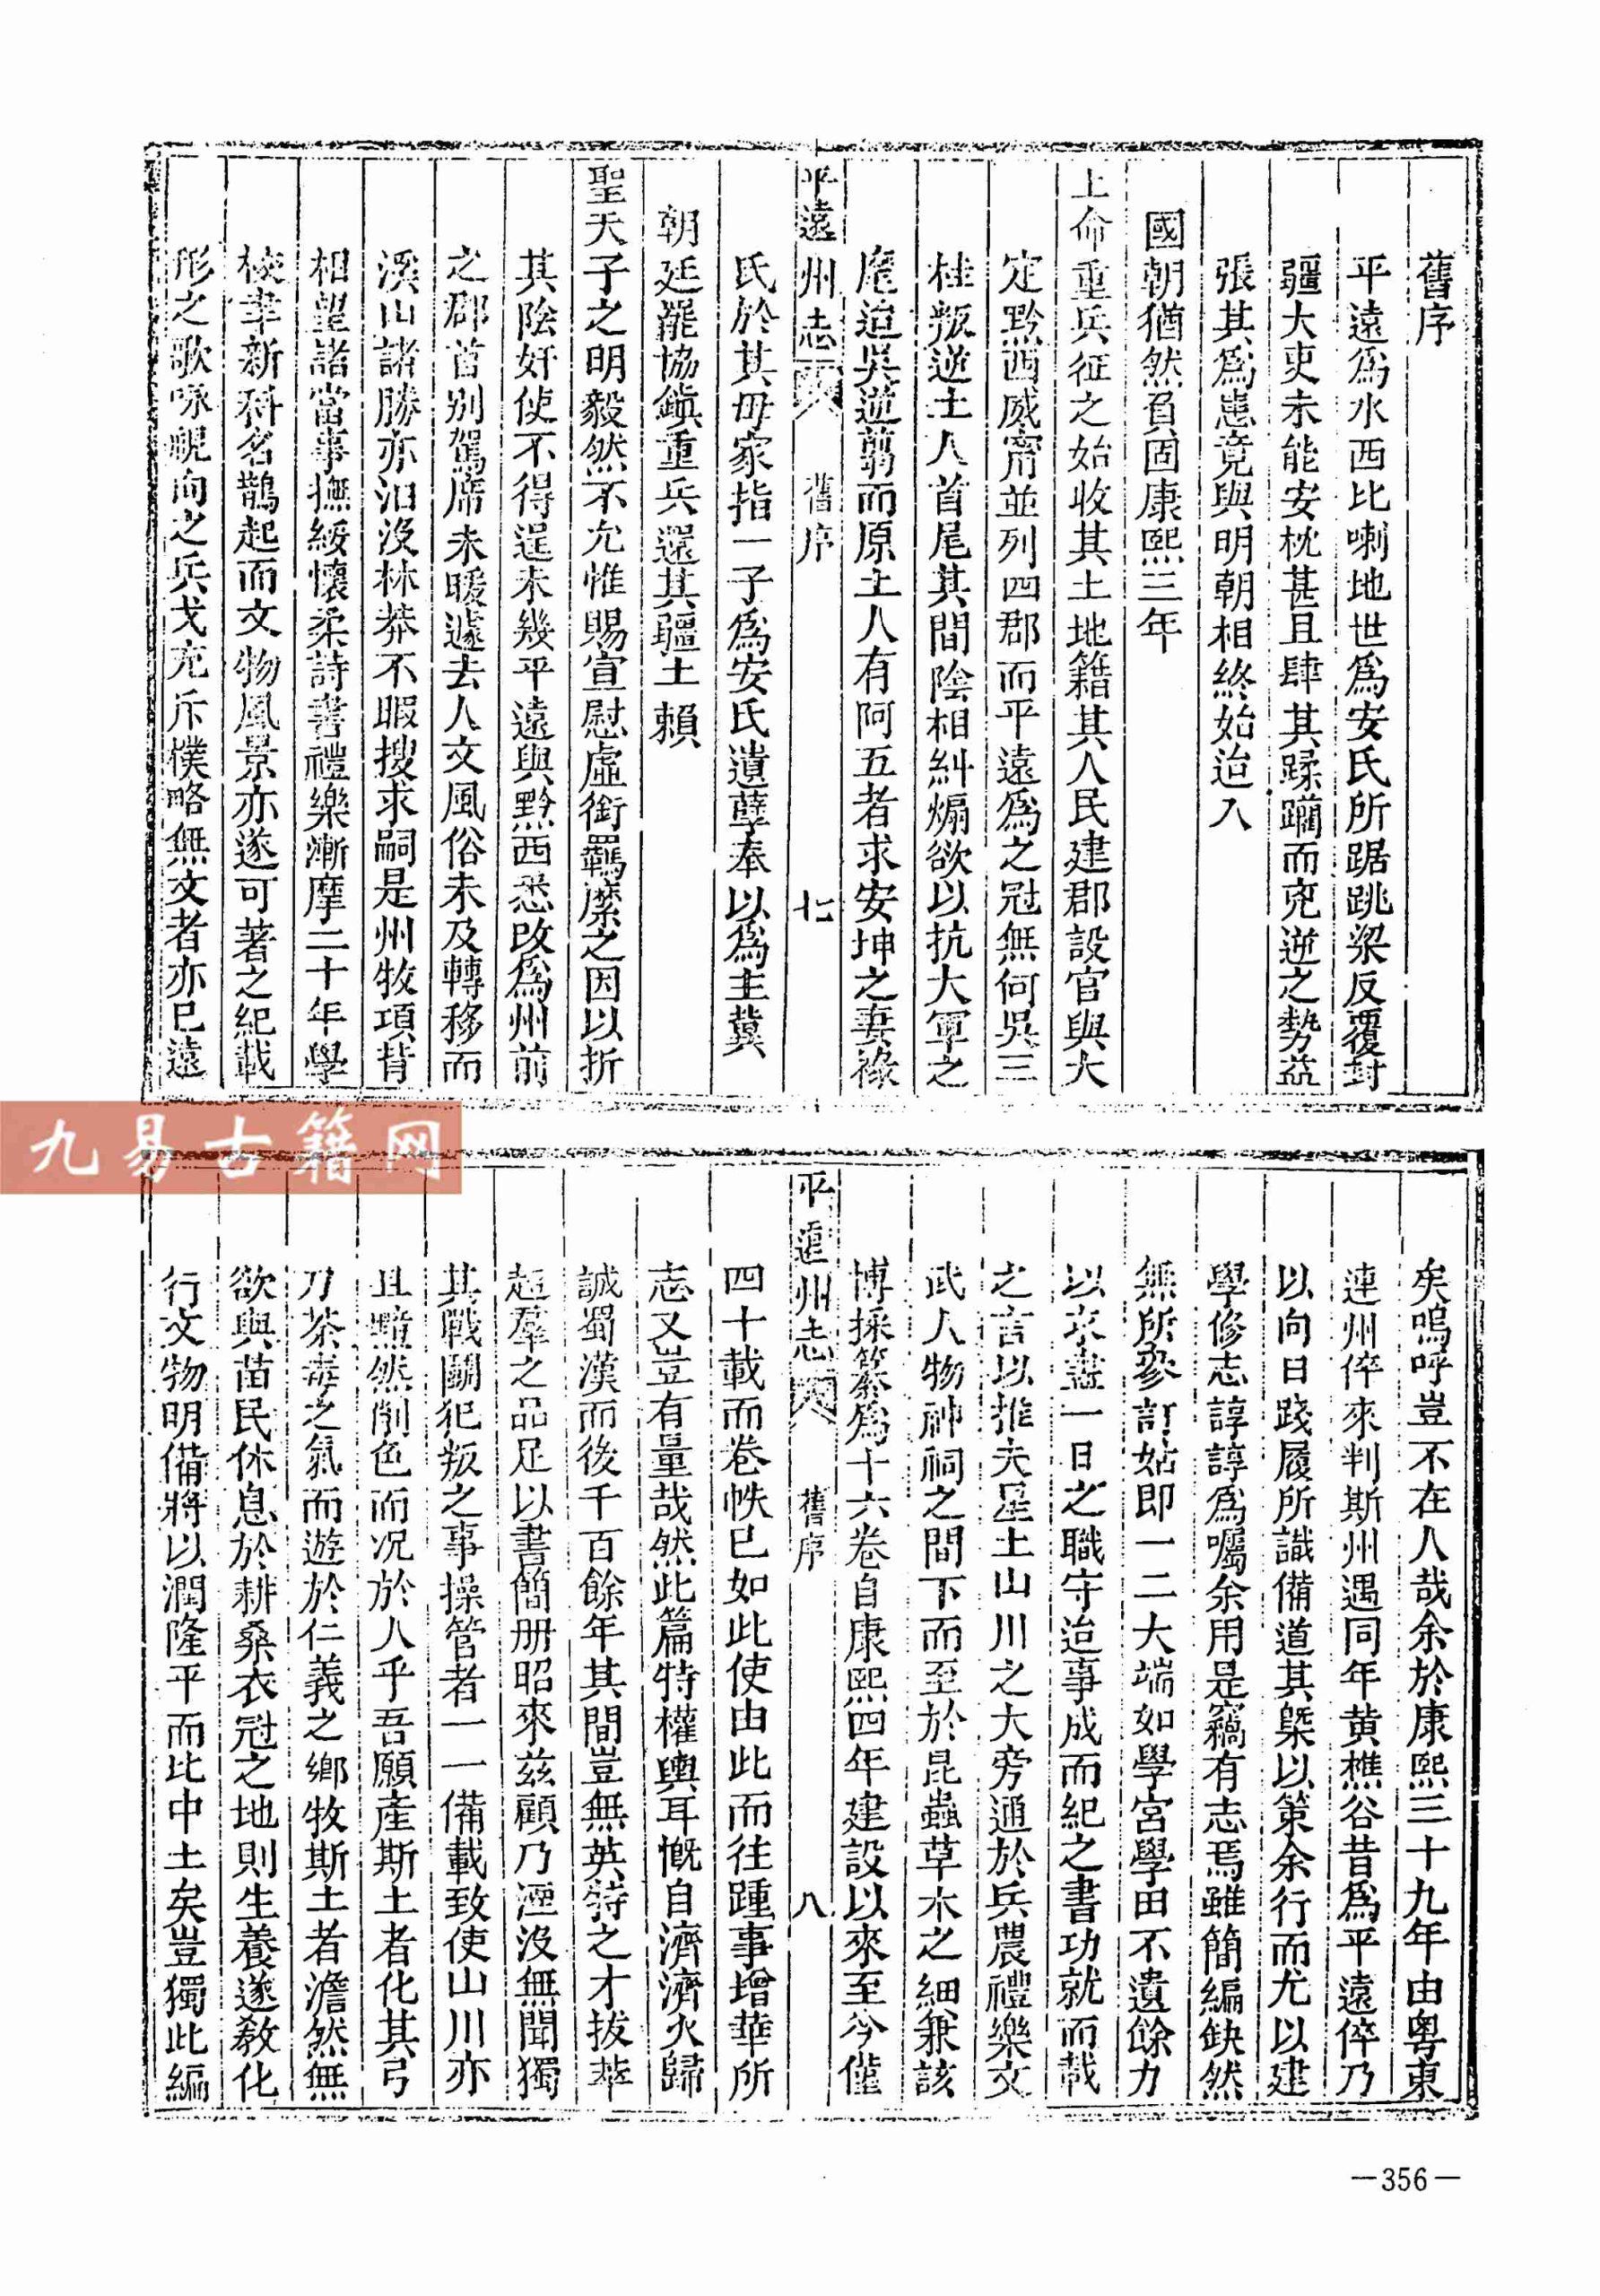 舊序
平遠爲水西比喇地世爲安氏所踞跳梁反覆封
疆大吏未能安枕甚且肆其蹂躪而兇逆之勢益
張其爲患竟與明朝相終始迨入
國朝猶然負固康熙三年
上命重兵征之始收其土地籍其人民建郡設官與大
定黔西威甯並列四郡而平遠爲之冠無何吳三
桂叛逆土人首尾其間陰相糾煽欲以抗大軍之
麾迨吳逆翦而原土人有阿五者求安坤之妻祿
平遠州志 舊序 七
氏於其母家指一子爲安氏遺孽奉以爲主冀
朝廷罷協鎭重兵還其疆土賴
聖天子之明毅然不允惟賜宣慰虛銜羈縻之因以折
其陰奸使不得逞未幾平遠與黔西悉改爲州前
之郡首別駕席未暖遽去人文風俗未及轉移而
溪山諸勝亦汨沒林莽不暇搜求嗣是州牧項背
相望諸當事撫綏懷柔詩書禮樂漸摩二十年學
校聿新科名鵲起而文物風景亦遂可著之紀載
形之歌咏視向之兵戈充斥樸略無文者亦已遠
矣嗚呼豈不在人哉余於康熙三十九年由粵東
連州倅來判斯州遇同年黄樵谷昔爲平遠倅乃
以向日踐履所識備道其槩以策余行而尤以建
學修志諄諄爲囑余用是竊有志焉雖簡編缺然
無所叅訂姑即一二大端如學宮學田不遺餘力
以求盡一日之職守迨事成而紀之書功就而載
之言以推夫星土山川之大旁通於兵農禮樂文
武人物神祠之間下而至於昆蟲草木之細兼該
博採纂爲十六卷自康熙四年建設以來至今僅
平遠州志 舊序 八
四十載而卷帙已如此使由此而往踵事增華所
志又豈有量哉然此篇特權輿耳慨自濟濟火歸
誠蜀漢而後千百餘年其間豈無英特之才拔萃
超羣之品足以書簡册昭來兹顧乃湮沒無聞獨
其戰鬭犯叛之事操管者一一備載致使山川亦
且黯然削色而況於人乎吾願產斯土者化其弓
刀荼毒之氣而遊於仁義之鄉牧斯土者澹然無
欲與苗民休息於耕桑衣冠之地則生養遂敎化
行文物明備將以潤隆平而比中土矣豈獨此編
—356—
九易古籍网